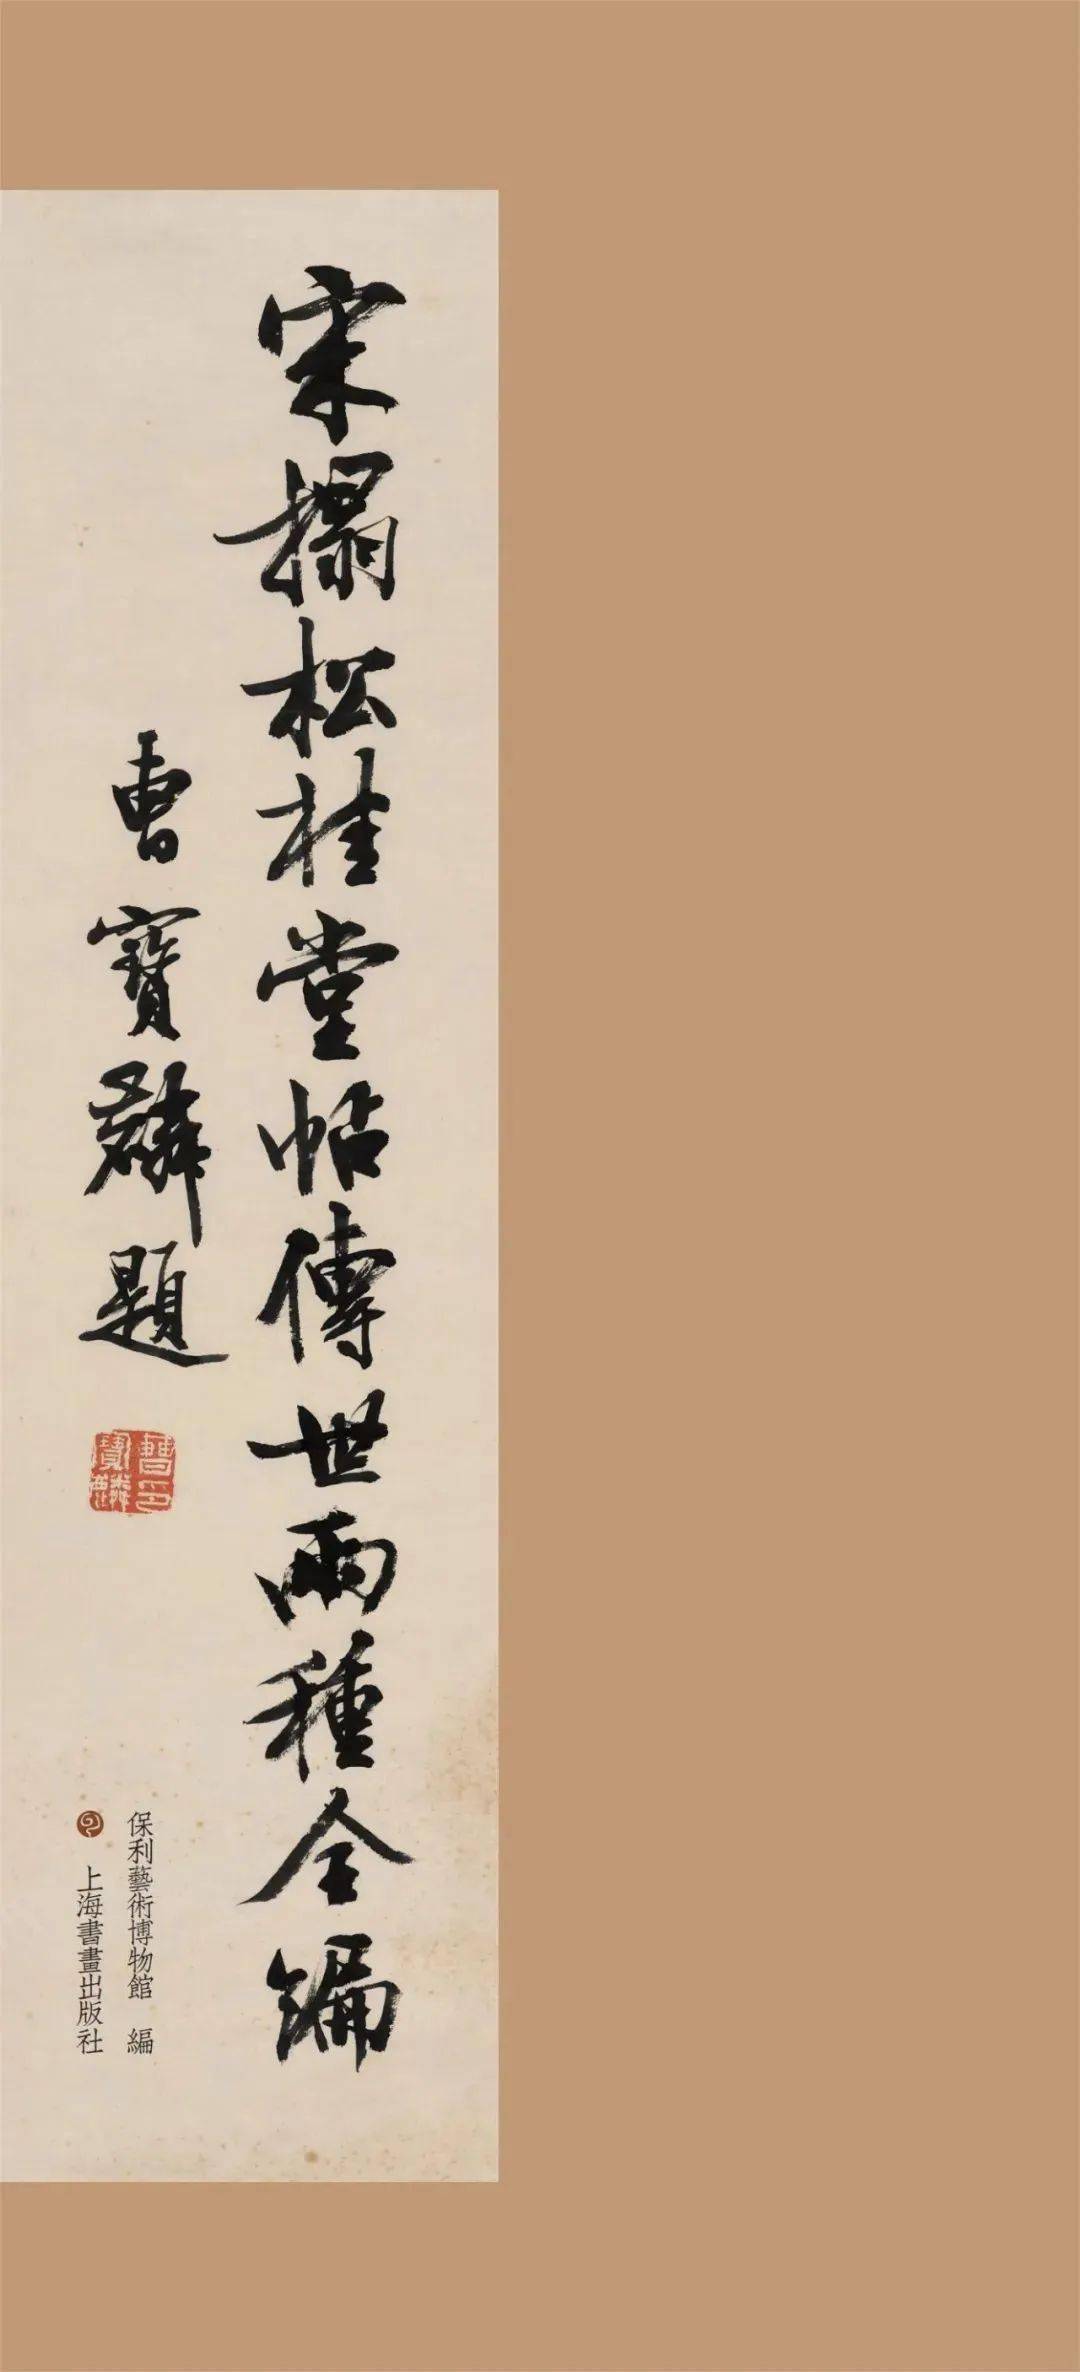 宋搨松桂堂帖傳世兩種全編
曹寶麟題
曹印寶麟
保利藝術博物館 編
上海書畫出版社